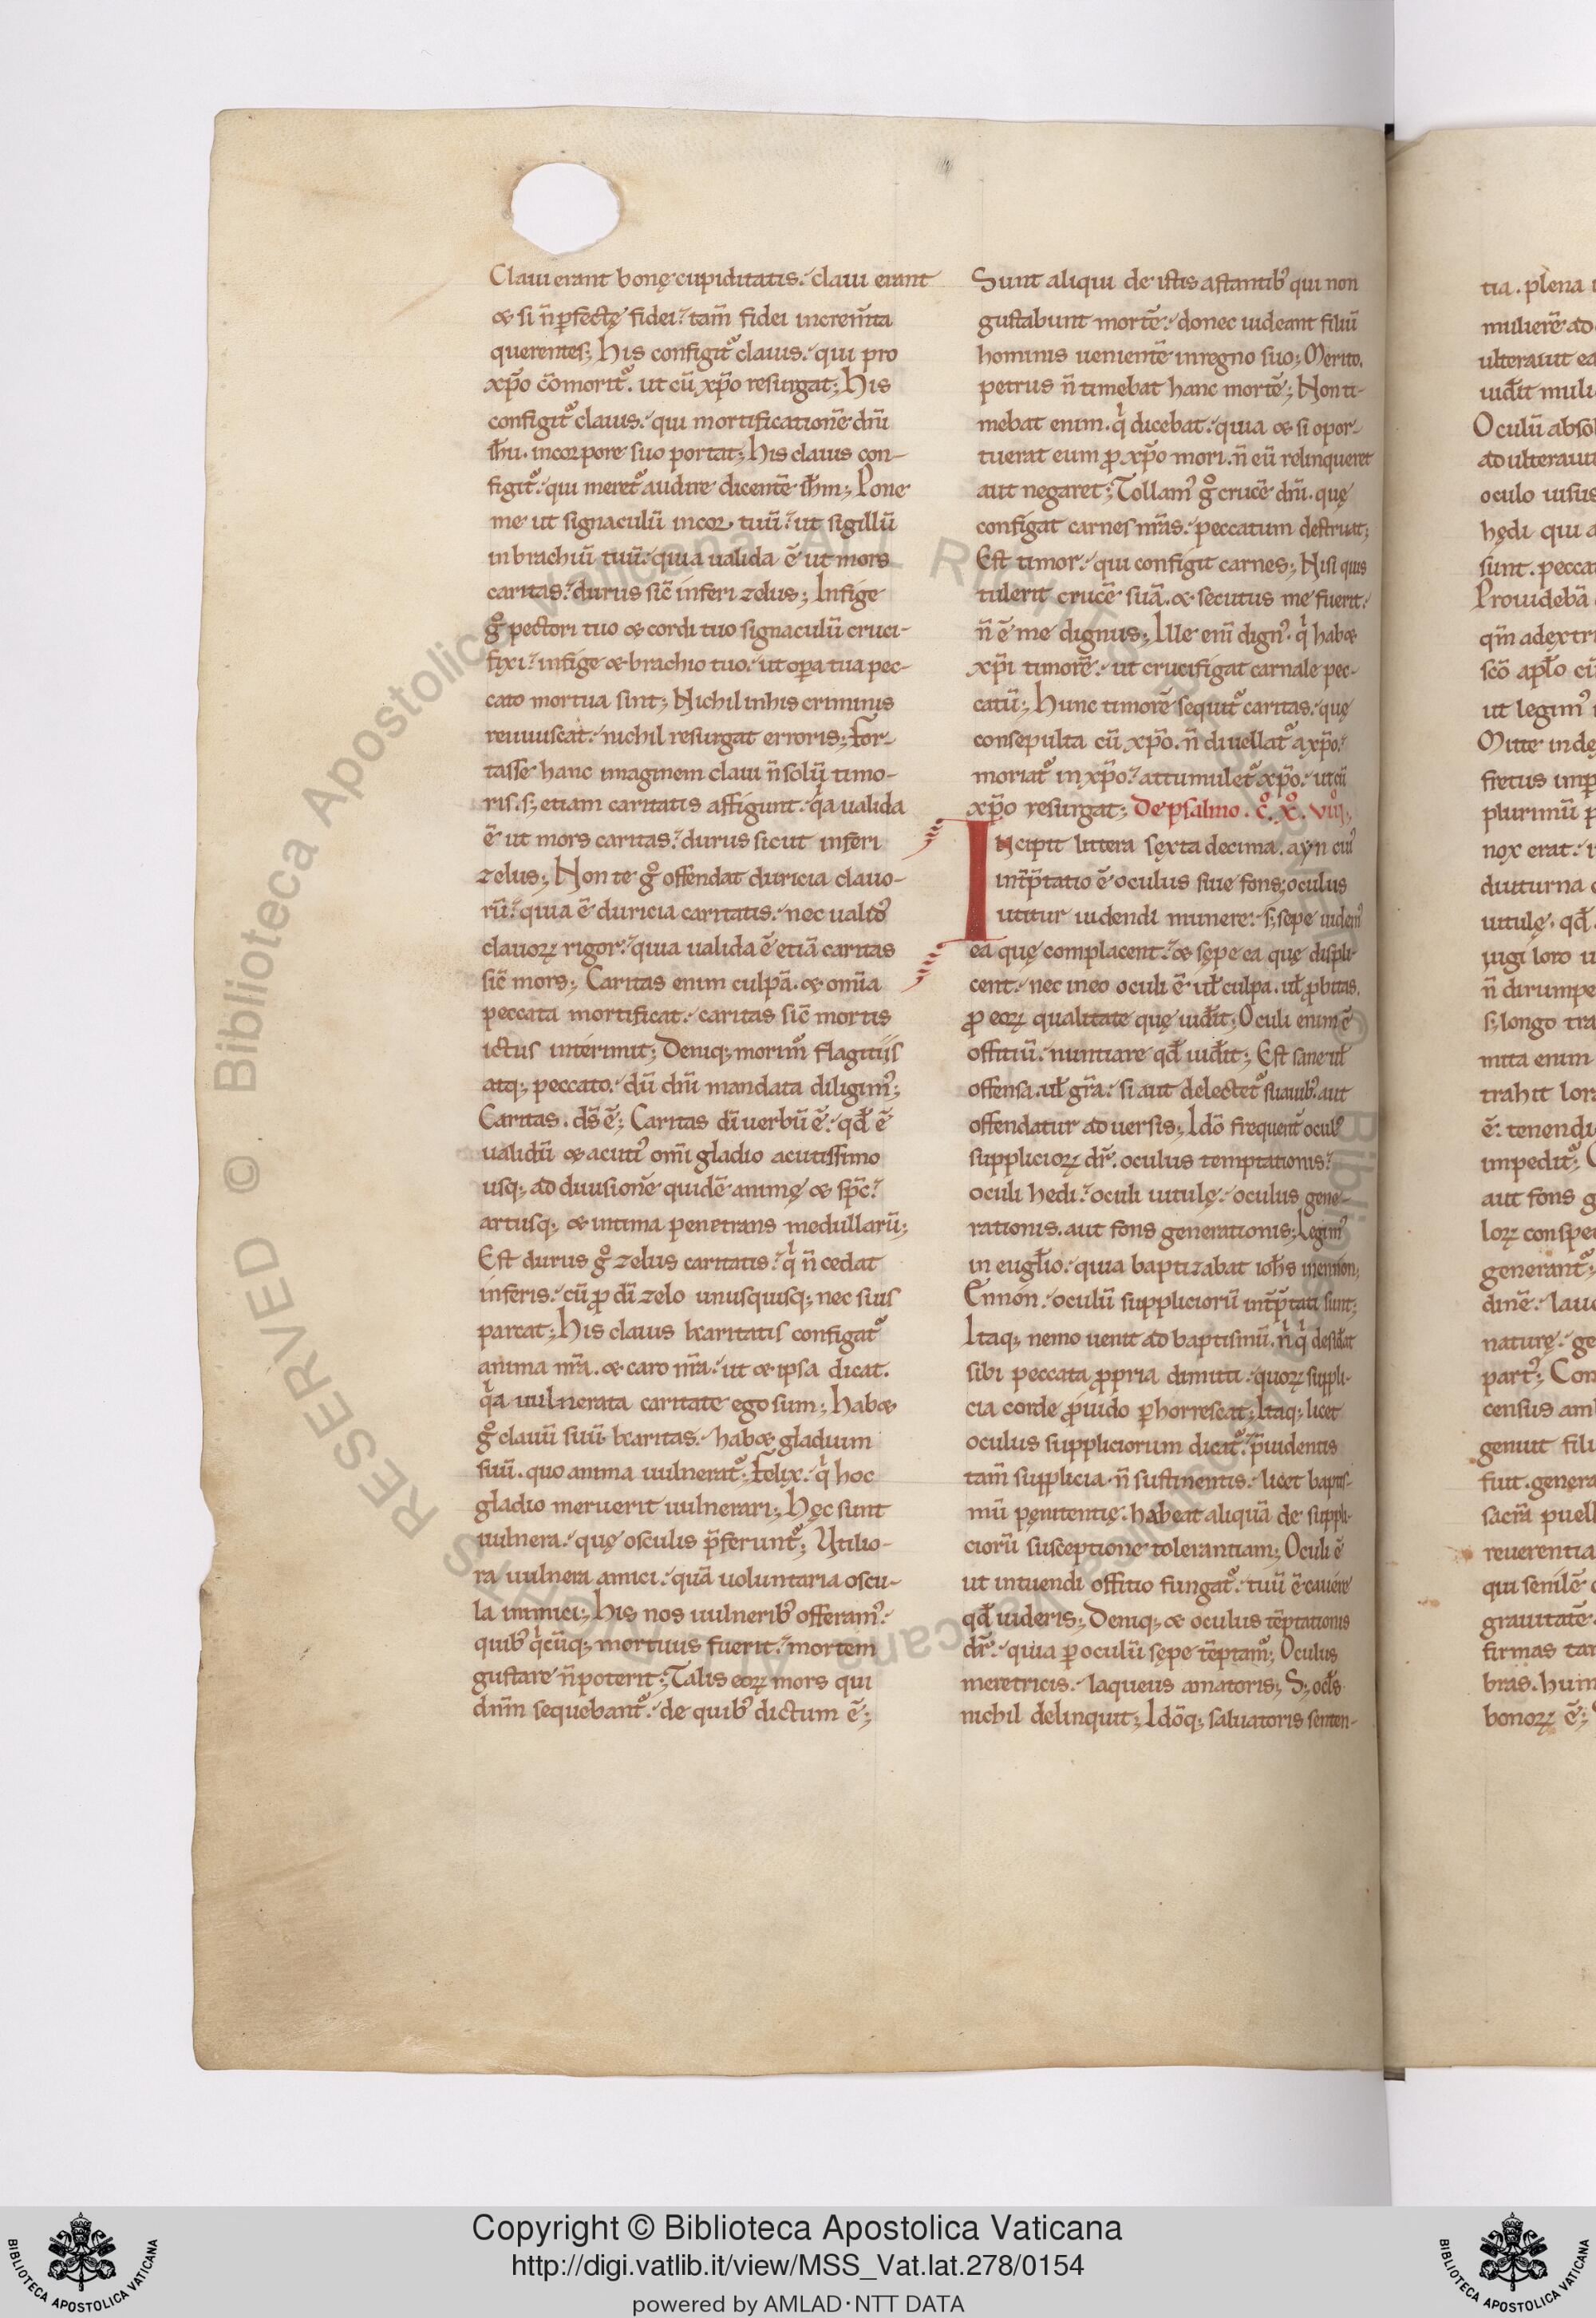 Claui erant bonę cupiditatis. claui erant
& si n̄ ꝑfectę fidei. tam̄ fidei increm̄ta
querentes; His configit᷒ clauis. qui pro
xp̄o cōmorit᷒. ut cū xp̄o resurgat; His
configit᷒ clauis. qui mortificationē dn̄i
ih̄u. incorpore suo portat; His clauis con-
figit᷒. qui meret᷒ audire dicentē ih̄m; Pone
me ut signaculū incor tuū. ut sigillū
in brachiū tuū. quia ualida ē ut mors
caritas. durus sic̄ inferi zelus; Infige
gͦ pectori tuo & cordi tuo signaculū cruci-
fixi. infige & brachio tuo. ut oꝑa tua pec-
cato mortua sint; Nichil inhis criminis
reuiuiscat. nichil resurgat erroris; For-
tasse hanc imaginem claui n̄ solū timo-
ris. s; etiam caritatis affigunt. q̍a ualida
ē ut mors caritas. durus sicut inferi
zelus; Non te gͦ offendat duricia clauo-
rū. quia ē duricia caritatis. nec ualid᷒
clauoꝝ rigor. quia ualida ē etiā caritas
sic̄ mors; Caritas enim culpā. & om̄ia
peccata mortificat. caritas sic̄ mortis
ictus interimit; Deniq; morim᷒ flagitiis
atq; peccato. dū dn̄i mandata diligim᷒;
Caritas. ds̄ ē; Caritas dī uerbū ē. qđ ē
ualidū & acutū om̄i gladio acutissimo
usq; ad diuisionē quidē animę & sp̄c.
artusq; & intima penetrans medullarū;
Est durus gͦ zelus caritatis. q̍ n̄ cedat
inferis. cū ꝓ dī zelo unusquisq; nec suis
parcat; His clauis kcaritatis configat᷒
anima nr̄a. & caro nr̄a. ut & ipsa dicat.
q̍a uulnerata caritate ego sum; hab&
gͦ clauū suū kcaritas. hab& gladium
suū. quo anima uulnerat᷒; Felix. q̍ hoc
gladio meruerit uulnerari; Hęc sunt
uulnera. quę osculis p̄ferunt᷒; Utilio-
ra uulnera amici. quā uoluntaria oscu-
la inimici; His nos uulnerib᷒ offeram᷒.
quib᷒ q̍cūq; mortuus fuerit. mortem
gustare n̄ poterit; Talis eoꝝ mors qui
dn̄m sequebant᷒. de quib᷒ dictum ē;
Sunt aliqui de istis astantib᷒ qui non
gustabunt mortē. donec uideant filiū
hominis uenientē inregno suo; Merito.
petrus n̄ timebat hanc mortē; Non ti-
mebat enim. q̍ dicebat. quia & si opor-
tuerat eum ꝓ xp̄o mori. n̄ eū relinqueret
aut negaret; Tollam᷒ gͦ crucē dn̄i. quę
configat carnes nr̄as. peccatum destruat;
Est timor. qui configit carnes; Nisi quis
tulerit crucē suā. & secutus me fuerit.
n̄ ē me dignus; Ille enī dign᷒. q̍ hab&
xp̄i timorē. ut crucifigat carnale pec-
catū; Hunc timorē sequit᷒ caritas. quę
consepulta cū xp̄o. n̄ diuellat᷒ a xp̄o.
moriat᷒ in xp̄o. attumulet᷒ xp̄o. ut cū
xp̄o resurgat; De psalmo. cͦ. xͦ. viiiͦ;
Incipit littera sexta decima. ayn cui᷒
int̄p̄tatio ē oculus siue fons; oculus
utitur uidendi munere. s; sepe uidem᷒
ea quę complacent. & sępe ea quę displi-
cent. nec ineo oculi ē uł culpa. uł ꝓbitas.
ꝓ eoꝝ qualitate quę uiđit; Oculi enim ē
offitiū. nuntiare qđ uiđit; Est sane uł
offensa. uł gr̄a. si aut delectet᷒ suauib᷒. aut
offendatur aduersis; Idō frequent̄ ocul᷒
suppliciorꝝ dr̄. oculus temptationis.
oculi hedi. oculi uitulę. oculus gene-
rationis. aut fons generationis; Legim᷒
in eugło. quia baptizabat ioh̄s inennon;
Ennon. oculū suppliciorū int̄p̄tati sunt;
Itaq; nemo uenit ad baptismū. n̄ q̍ desiđat
sibi peccata ꝓpria dimitti. quoꝝ suppli-
cia corde ꝓuido ꝑhorrescat; Itaq; licet
oculus suppliciorum dicat᷒. p̄uidentis
tam̄ supplicia. n̄ sustinentis. licet baptis-
mū pęnitentię. habeat aliquā de suppli-
ciorū susceptione tolerantiam; Oculi ē
ut intuendi offitio fungat᷒. tuū ē cauere
qđ uideris; Deniq; & oculus tēptationis
dr̄. quia ꝑ oculū sępe tēptam᷒; Oculus
meretricis. laqueus amatoris; S; ocłs
nichil delinquit; Idōq; saluatoris senten-
Copyright © Biblioteca Apostolica Vaticana
http://digi.vatlib.it/view/MSS_Vat.lat.278/0154
powered by AMLAD·NTT DATA
BIBLIOTECA APOSTOLICA VATICANA
BIBLIOTECA APOSTOLICA VATICANA